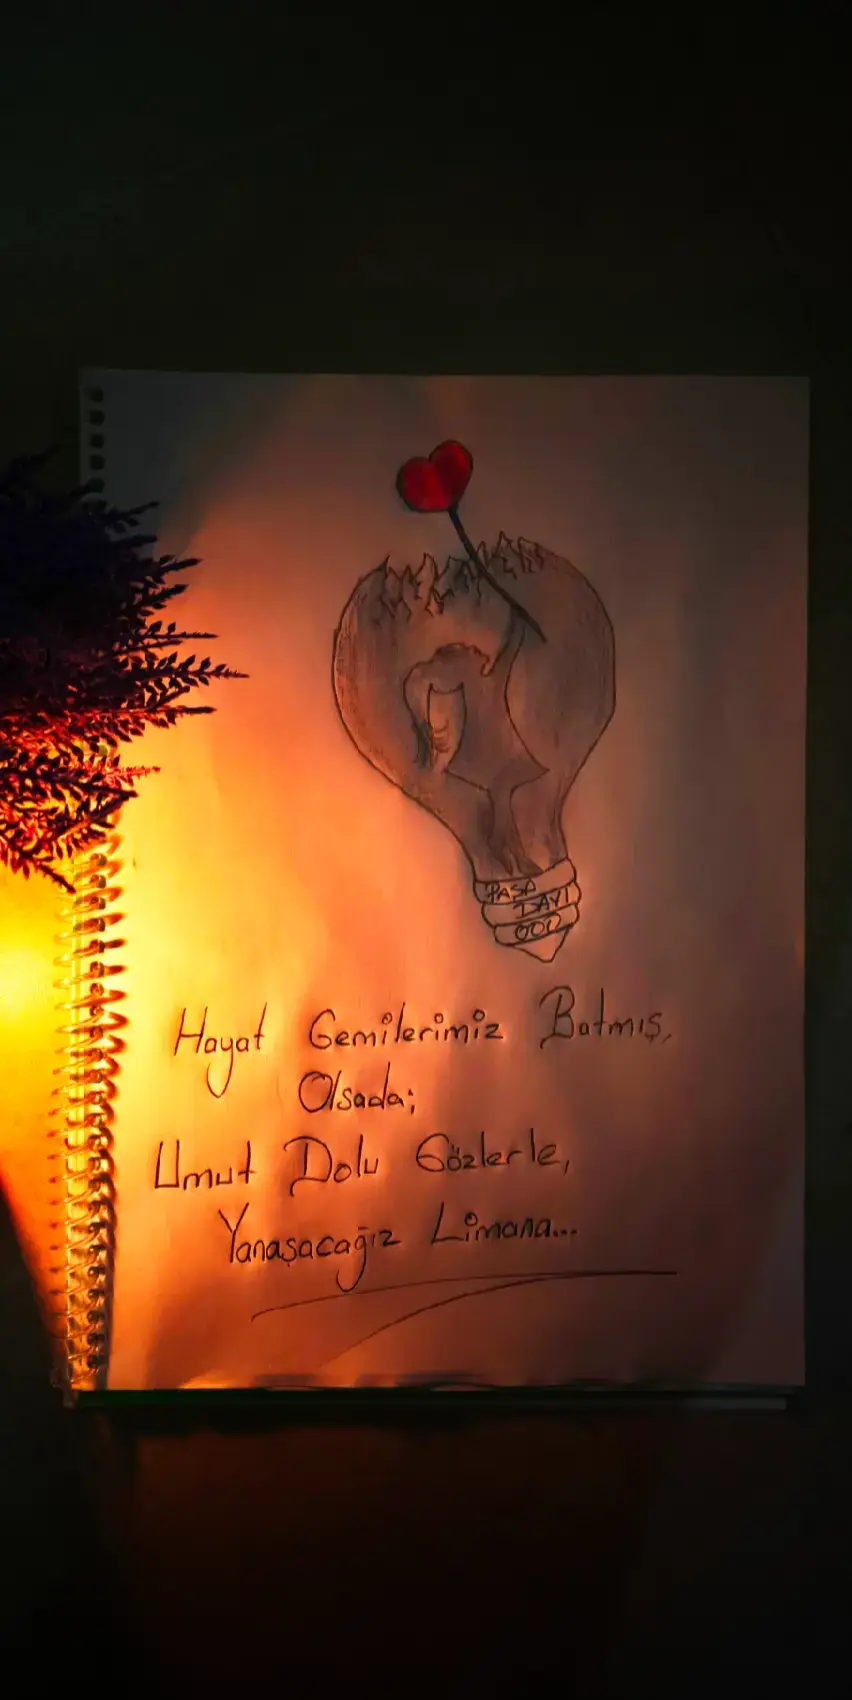 PAŞA
DAYI
Hayat Gemilerimiz Batmış,
Olsada;
Umut Dolu Gözlerle,
Yanaşacağız Limana...